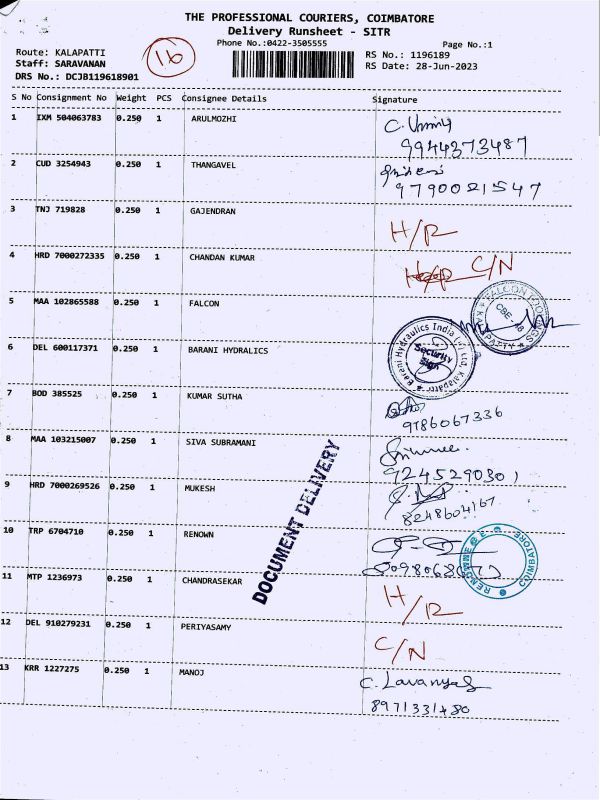 THE PROFESSIONAL COURIERS, COIMBATORE
Delivery Runsheet - SITR
Phone No.:0422-3505555 Page No.:1
Route: KALAPATTI 16 RS No.: 1196189
Staff: SARAVANAN RS Date: 28-Jun-2023
DRS No.: DCJB119618901
S No Consignment No Weight PCS Consignee Details Signature
1 IXM 504063783 0.250 1 ARULMOZHI
9944373487
2 CUD 3254943 0.250 1 THANGAVEL
9790021547
3 TNJ 719828 0.250 1 GAJENDRAN H/R
4 HRD 7000272335 0.250 1 CHANDAN KUMAR C/N
5 MAA 102865588 0.250 1 FALCON
6 DEL 600117371 0.250 1 BARANI HYDRALICS
Barani Hydraulics India Security Sign
7 BOD 385525 0.250 1 KUMAR SUTHA
9786067336
8 MAA 103215007 0.250 1 SIVA SUBRAMANI
9245290301
9 HRD 7000269526 0.250 1 MUKESH
8248604167
DOCUMENT DELIVERY
10 TRP 6704710 0.250 1 RENOWN
COIMBATORE
11 MTP 1236973 0.250 1 CHANDRASEKAR H/R
12 DEL 910279231 0.250 1 PERIYASAMY C/N
13 KRR 1227275 0.250 1 MANOJ C. Lavanya
8971331480